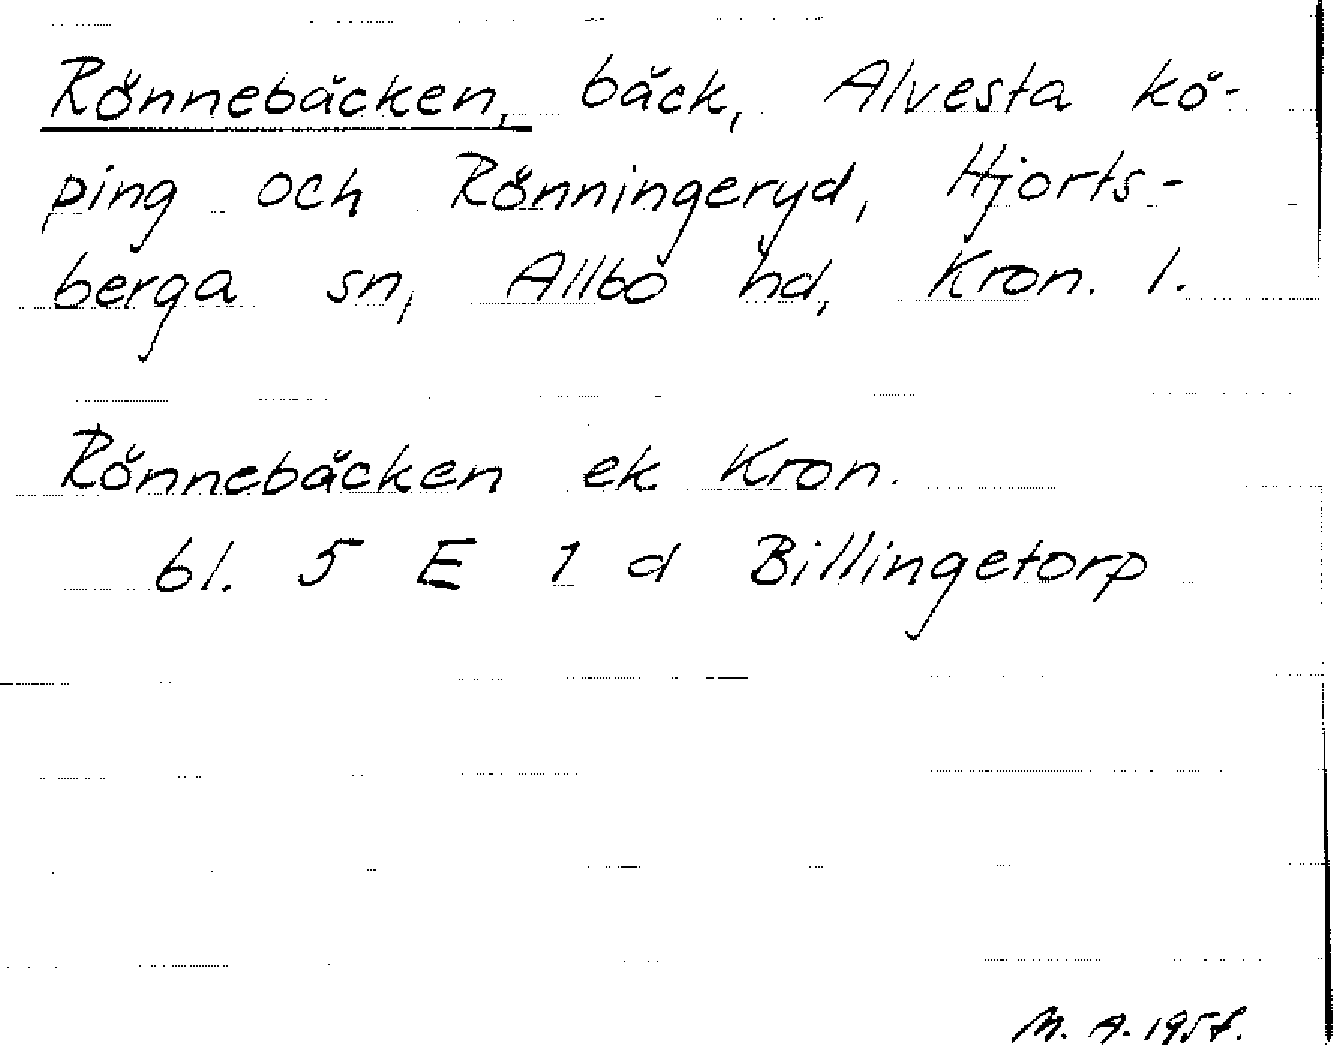 Rönnebäcken, bäck, Alvesta kö-
ping och Rönningeryd, Hjorts-
berga sn, Allbo hd, Kron. l.
Rönnebäcken ek Kron.
bl. 5 E 1 d Billingetorp
M. A. 1958.